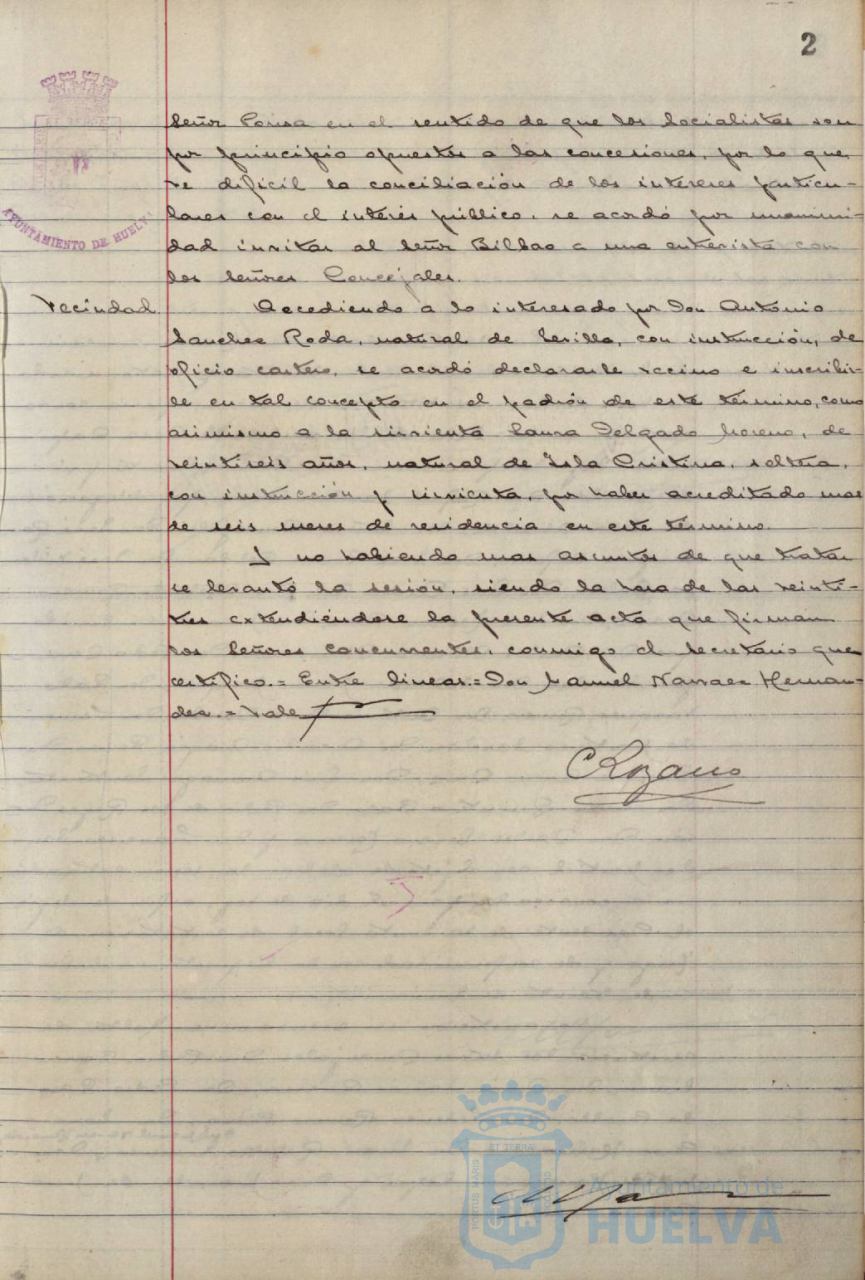 2
AYUNTAMIENTO DE HUELVA
Señor Ponsa en el sentido de que los Socialistas son
por principio opuestos a las concesiones, por lo que
ve dificil la conciliación de los intereses particu-
lares con el interés público, se acordó por unanimi-
dad invitar al Señor Bilbao a una entrevista con
los Señores Concejales.
Vecindad.
Accediendo a lo interesado por Don António
Sanchez Roda, natural de Sevilla, con instrucción, de
oficio cartero, se acordó declararle vecino e inscribir-
le en tal concepto en el padrón de este término, como
asimismo a la sirvienta Laura Delgado Moreno, de
veintiseis años, natural de Isla Cristina, soltera,
con instrucción y sirvienta, por haber acreditado mas
de seis meses de residencia en este término.
Y no habiendo mas asuntos de que tratar
se levantó la sesión, siendo la hora de las veinti-
tres extendiéndose la presente acta que firman
los Señores concurrentes, conmigo el Secretario que
certifico.= Entre lineas.= Don Manuel Narvaez Hernan-
dez.= Vale
Ayuntamiento de
HUELVA